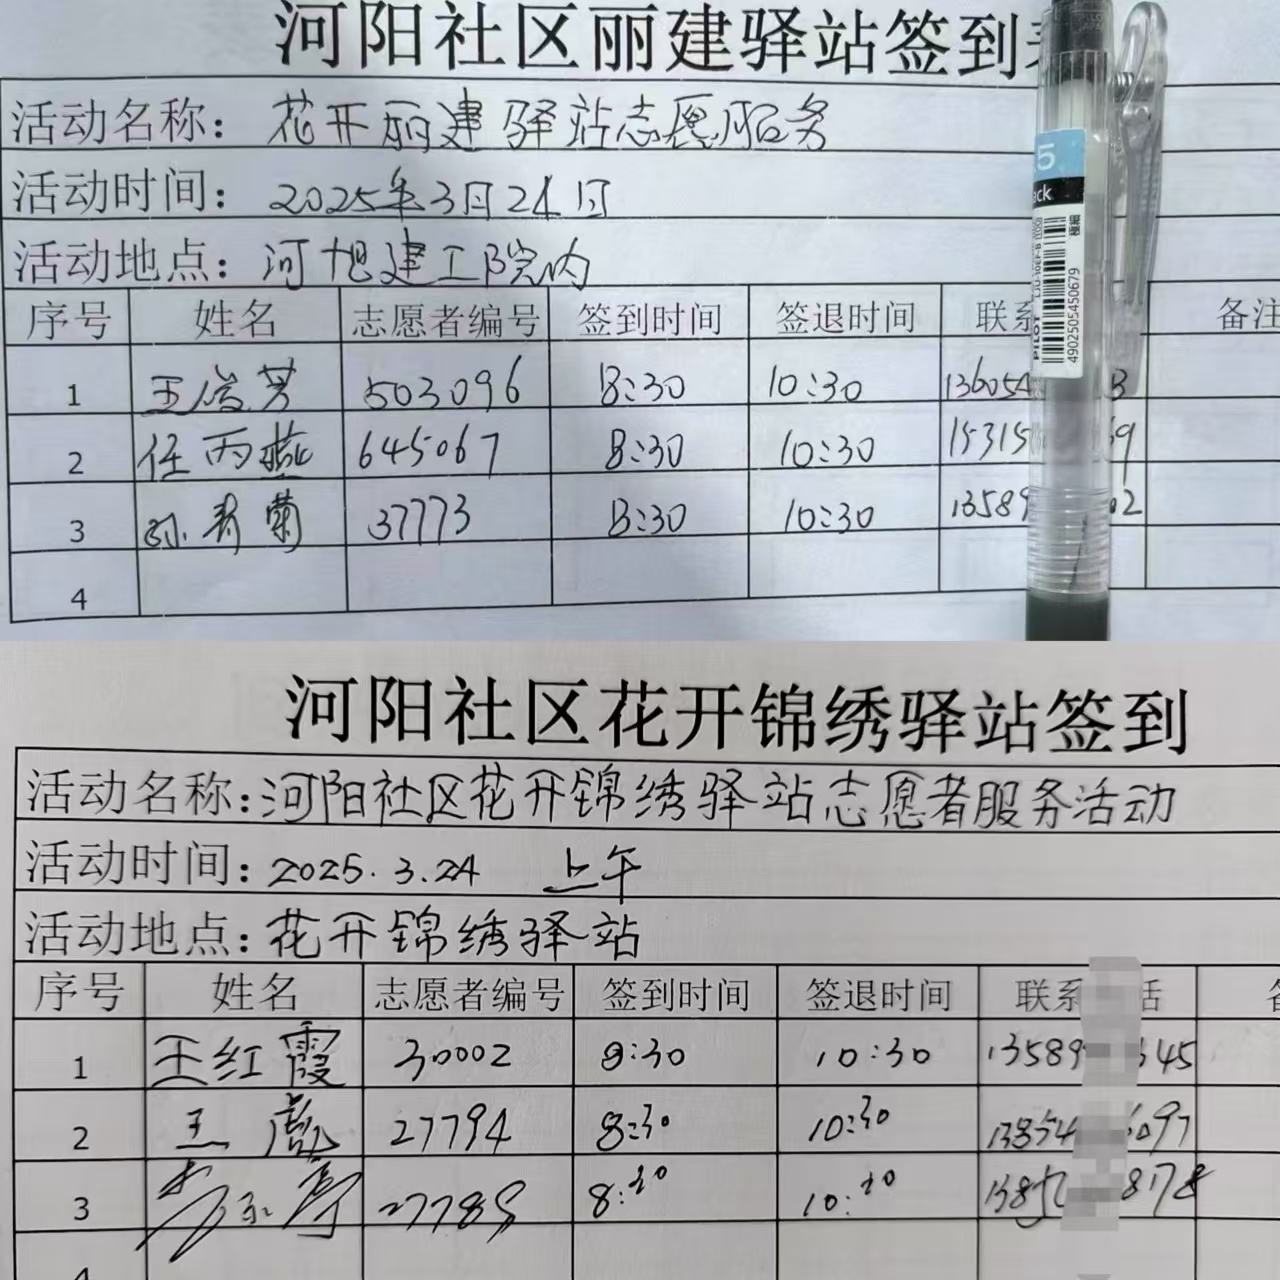 河阳社区丽建驿站签到
活动名称：花开丽建驿站志愿服务
活动时间：2025年3月24日
活动地点：河旭建工院内
序号 姓名 志愿者编号 签到时间 签退时间 联系 备注
1 王俊芳 503096 8:30 10:30 136054 3
2 任丙燕 645067 8:30 10:30 15315 59
3 孙秀菊 37773 8:30 10:30 13589 02
4
5
ack
PILOT
4902505450679
河阳社区花开锦绣驿站签到
活动名称：河阳社区花开锦绣驿站志愿者服务活动
活动时间：2025.3.24 上午
活动地点：花开锦绣驿站
序号 姓名 志愿者编号 签到时间 签退时间 联系 话
1 王红霞 30002 8:30 10:30 13589 345
2 王彪 27794 8:30 10:30 13854 6097
3 27785 8:30 10:30 1385 8178
4